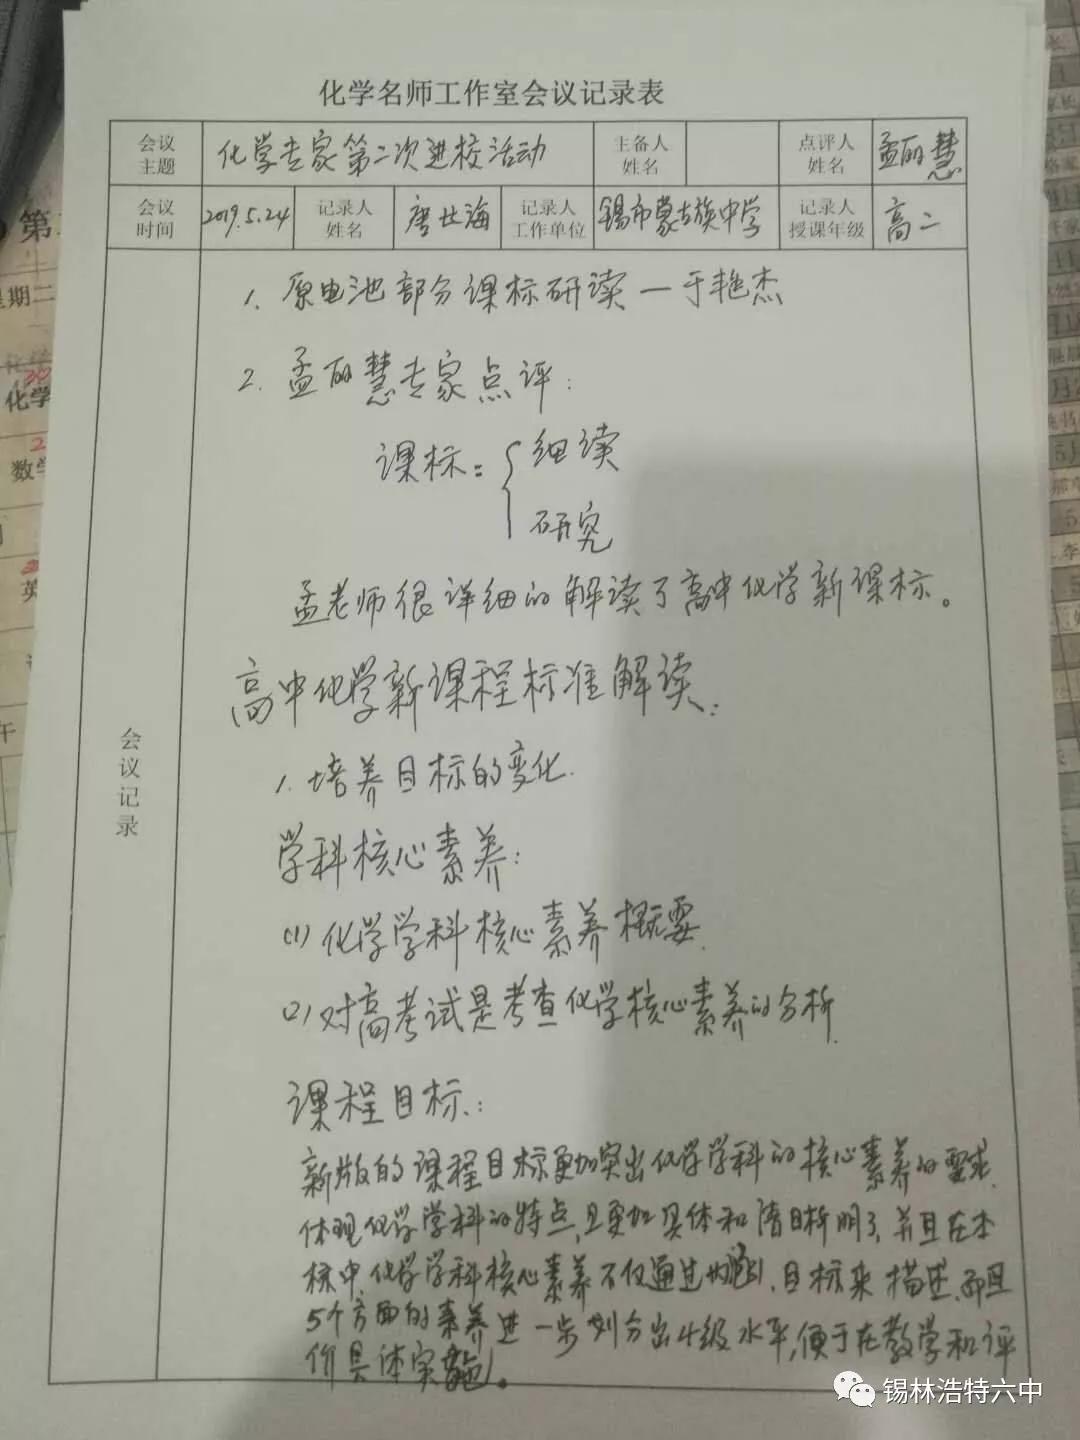 化学名师工作室会议记录表
会议主题 化学专家第二次进校活动 主备人姓名 点评人姓名 孟丽慧
会议时间 2019.5.24 记录人姓名 唐世海 记录人工作单位 锡市蒙古族中学 记录人授课年级 高二
会议记录
1. 原电池部分课标研读—于艳杰
2. 孟丽慧专家点评:
课标: { 细读
研究
孟老师很详细的解读了高中化学新课标。
高中化学新课程标准解读:
1. 培养目标的变化.
学科核心素养:
(1) 化学学科核心素养概要.
(2) 对高考试是考查化学核心素养的分析.
课程目标:
新版的课程目标更加突出化学学科的核心素养的要求.
体现化学学科的特点,且更加具体和清晰明了,并且在本
标中,化学学科核心素养不仅通过 目标来描述,而且
5个方面的素养进一步划分出4级水平,便于在教学和评
价具体实施。
第
星期二
化学
数学
英
午
锡林浩特六中